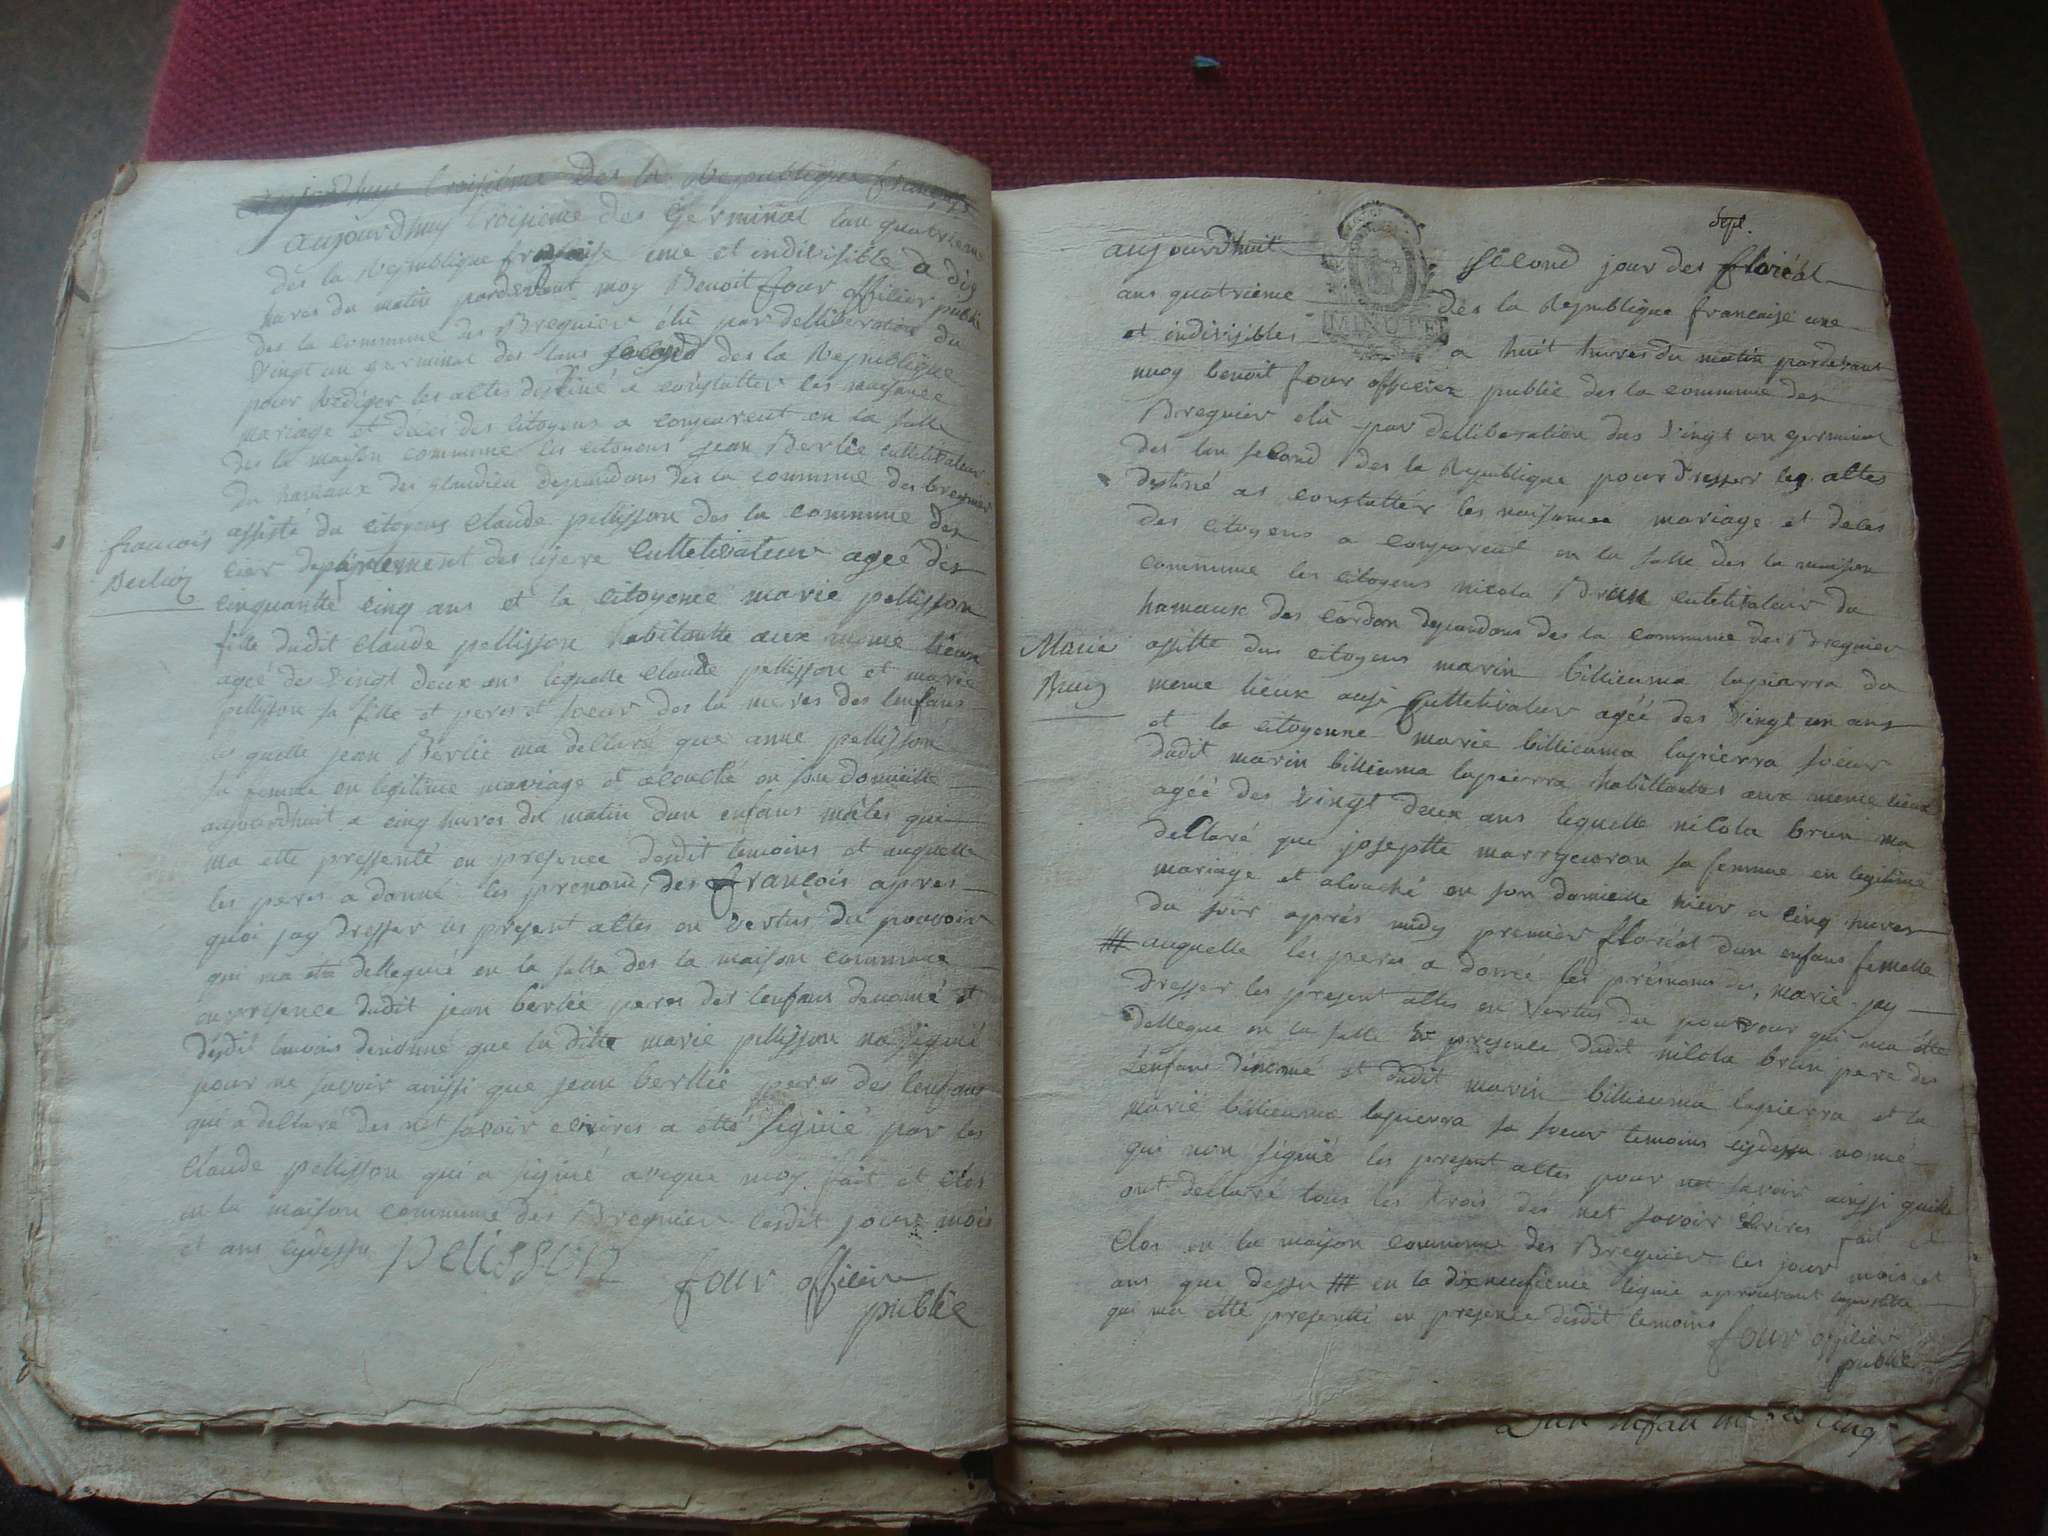 aujourdhuy troisième des la Republique française
aujourdhuy troisieme des Germinal lan quatrieme
des la Republique française une et indivisible a dix
hures du matin pardevant moy Benoit four officier public
des la commune des Bregnier élu par delliberation du
vingt un Germinal des lans second des la Republique
pour rédiger les actes destiné a constatter les naisance
mariage et déces des citoyens a comparent en la salle
des la maison commune les citoyens jean Berlie culttivateur
du hamaux des glandieu dependans des la commune des bregnier
françois
Berlioz
assisté du citoyens Claude pellisson des la commune des
cier departement des lisere culttivateur ageé des
cinquantte cinq ans et la citoyenne marie pellisson
fille dudit claude pellisson habitantte aux même lieux
ageé des vingt deux ans lequelle claude pellisson et marie
pellisson sa fille et peres et soeur des la meres des lenfans
lequelle jean Berlie ma dellaré que anne pellisson
sa femme en legitime mariage et acouché en son domicille
aujourdhuit a cinq hures du matin dun enfans mâles qui
ma ette pressenté en presence desdit temoins et auquelle
les peres a donné les prenoms des françois apres
quoi jay dresser les present actes en vertus du pouvoir
qui ma été dellegué en la salle des la maison commune
en presence dudit jean berlie peres des lenfans denomé et
desdit temoins denomé que la ditte marie pellisson na signié
pour ne savoir ainssi que jean berlie peres des lenfans
qui a dellaré des net savoir ecrires a été signié par les
claude pellisson qui a signié aveque moy fait et clos
en la maison commune des Bregnier lesdit jours mois
et ans cydessu pelisson
four officier
publie
sept
aujourdhuit second jour des floréal
ans quatrieme des la Republique française une
MINUTE
et indivisibles a huit hures du matin pardevant
moy benoit four officier public des la commune des
Bregnier elu par delliberation dus vingt un germinal
des lan second des la Republique pour dresser les actes
destiné as constatter les naisance mariage et déces
des citoyens a comparent en la salle des la maison
commune les citoyens nicola Brun culttivateur du
hamaux des cordon dependans des la commune des Bregnier
Marie
Brun
assistte dus citoyens marin billiemma lapierra du
meme lieux ausi culttivateur ageé des vingt un ans
et la citoyenne marie billiemma lapierra soeur
dudit marin billiemma lapierra habittantes aux meme lieux
ageé des vingt deux ans lequelle nicola brun ma
dellaré que joseptte sa femme en legitime
mariage et acouché en son domicille hier a cinq hures
du soir aprés midy premier floréal dun enfans femelle
# auquelle les peres a donné les prénoms des, marie jay
dresser les present actes en vertus du pouvoir qui ma été
dellegue en la salle en presence dudit nicola brun pere des
lenfans dénomé et dudit marin billiemma lapierra et la
marie billiemma lapierra sa soeur temoins cydessu nomé
qui non signié les present actes pour ne savoir ainssi quille
ont declaré tous les trois des net savoir ecrires fait et
clos en la maison commune des Bregnier les jour mois et
ans que dessu # en la dixneufieme lignie
qui ma été presentté en presence desdit temoins
four officier
public